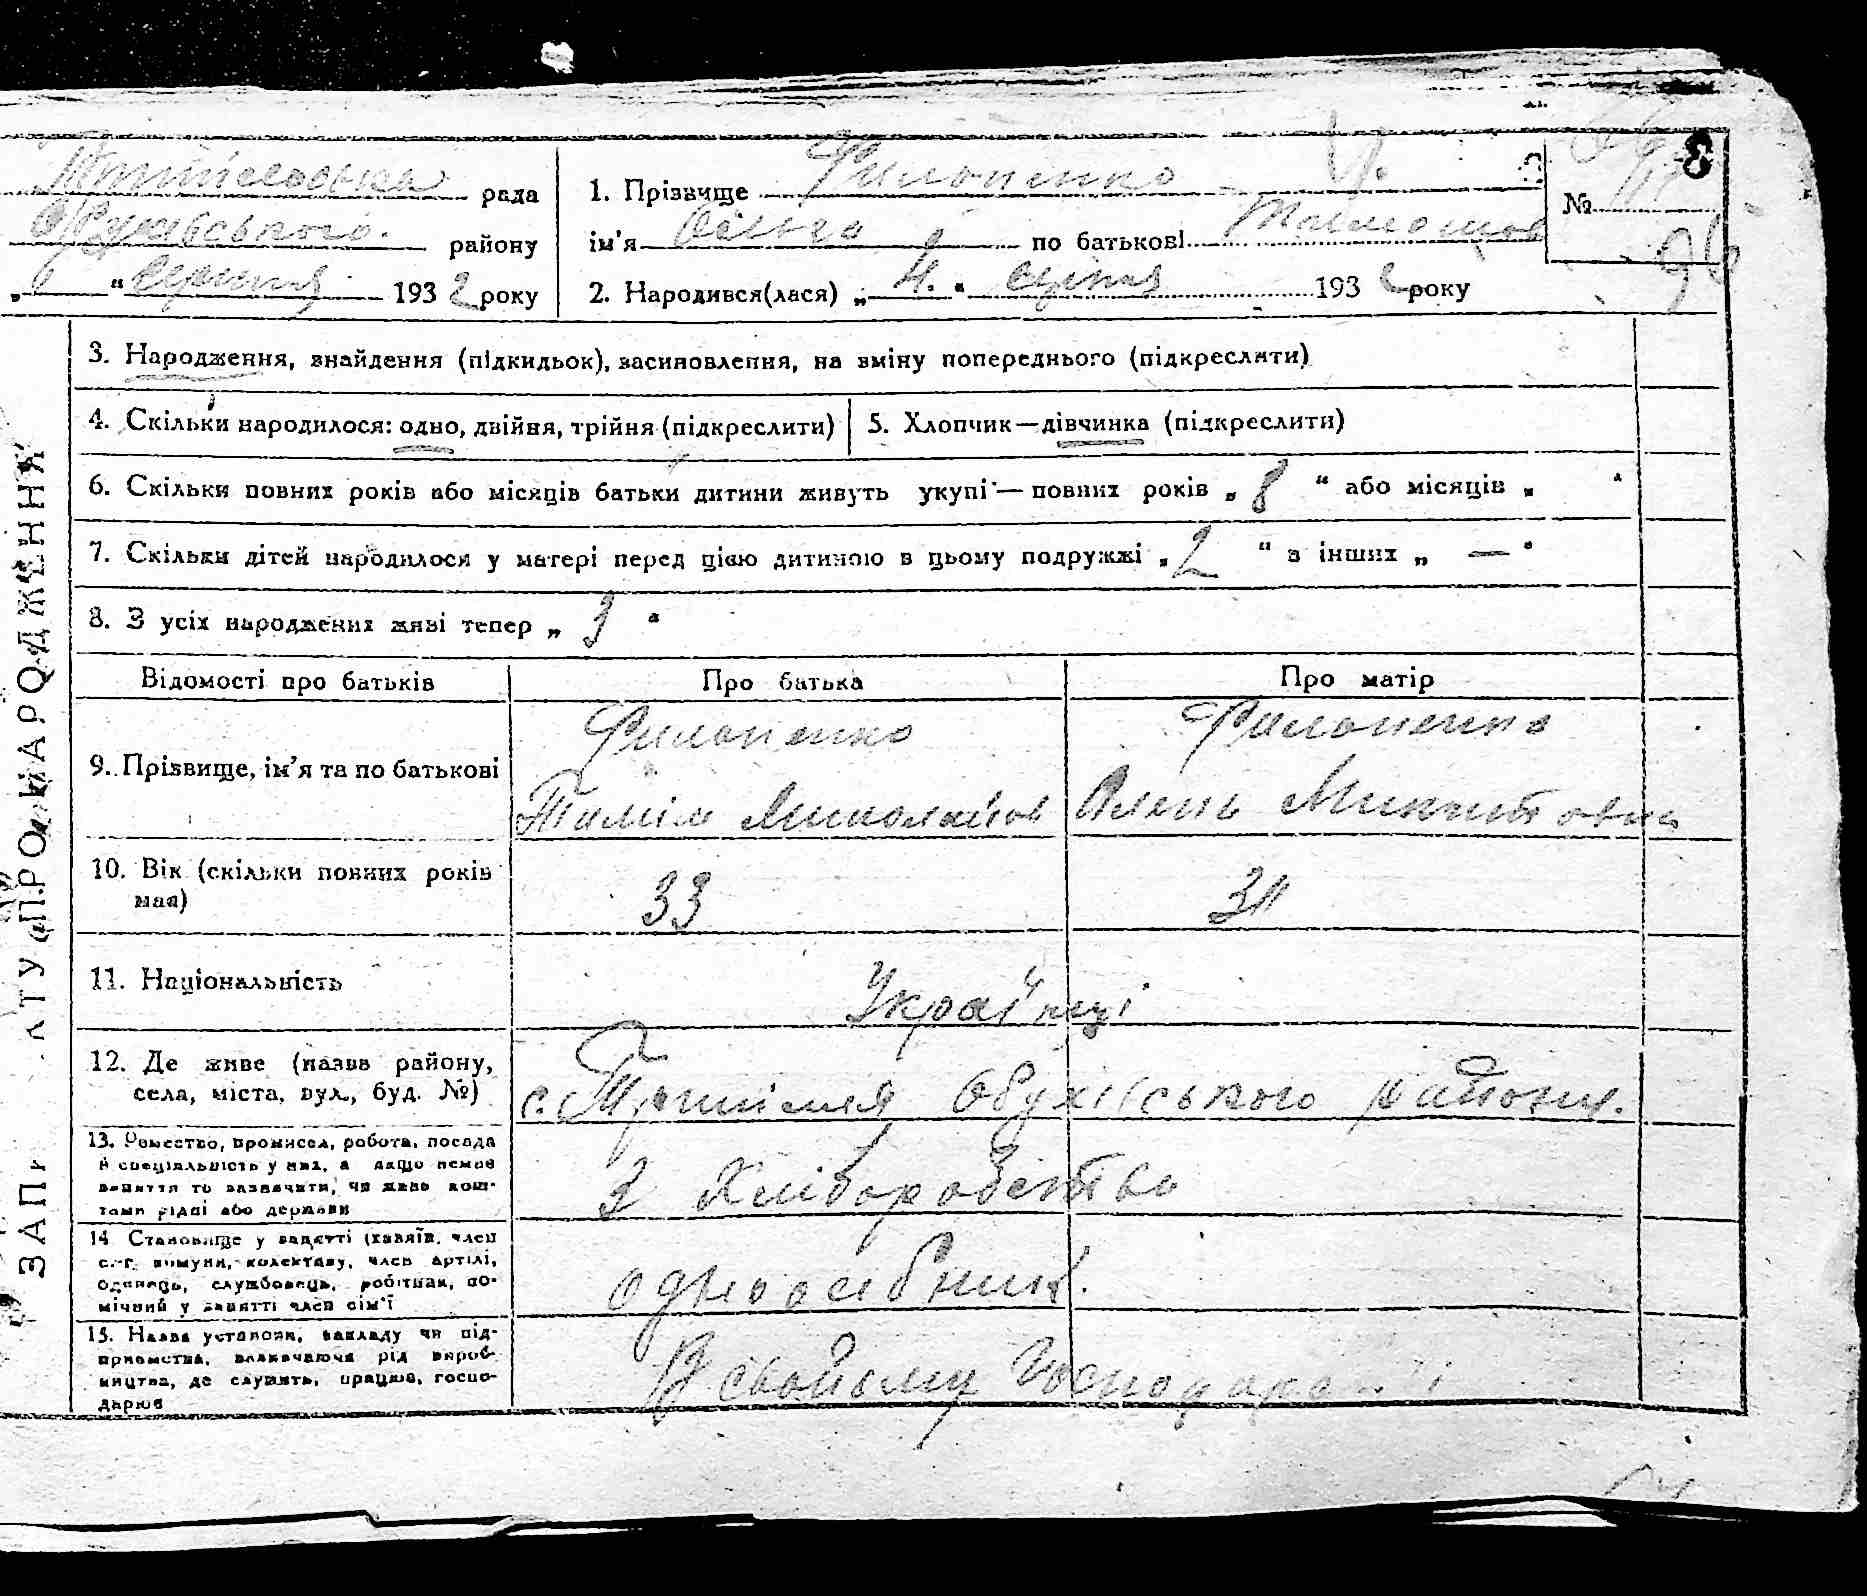 рада 1. Прізвище Филоненко 8
Обухівського району ім'я Ольга по батькові №
" серпня 1932 року 2. Народився(лася) „4." серпня 1932 року 96
3. Народження, знайдення (підкидьок), засиновлення, на зміну попереднього (підкреслити)
4. Скільки народилося: одно, двійня, трійня (підкреслити) 5. Хлопчик—дівчинка (підкреслити)
6. Скільки повних років або місяців батьки дитини живуть укупі — повних років „8" або місяців „ "
7. Скільки дітей народилося у матері перед цією дитиною в цьому подружжі „2" з інших „—"
8. З усіх народжених живі тепер „3"
Відомості про батьків Про батька Про матір
Филоненко Филоненко
9. Прізвище, ім'я та по батькові
Миколайов Микитовна
10. Вік (скільки повних років
має) 33
11. Національність Україпці
12. Де живе (назва району,
села, міста, вул., буд. №) с. Трипілля Обухівського району.
13. Ремество, промисел, робота, посада
й спеціальність у них, а якщо немає
заняття то зазначити, чи живе кош-
тами рідні або держави З Хліборобства
14. Становище у занятті (хазяїн, член
с.-г. комуни, колективу, член артілі,
одинець, службовець, робітник, по-
мічний у занятті член сім'ї одноосібник.
15. Назва установи, закладу чи під-
приємства, зазначаючи рід вироб-
ництва, де служить, працює, госпо-
дарює В свойому
ПРО НАРОДЖЕННЯ